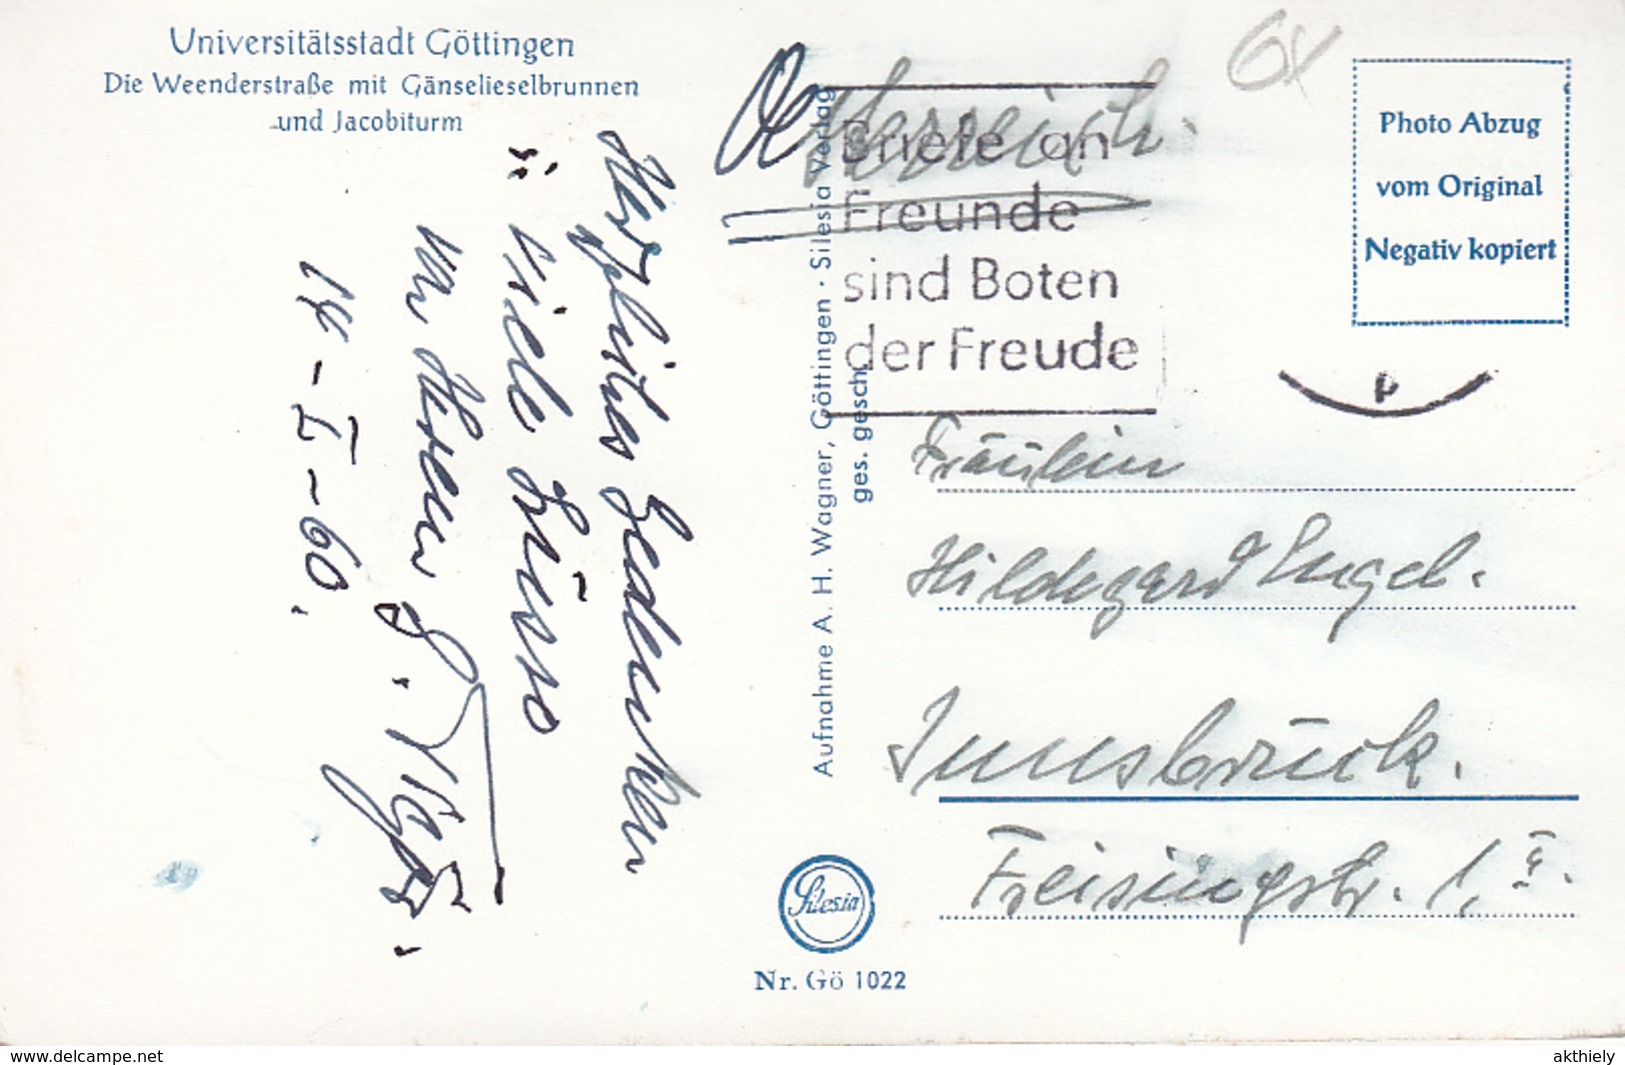 Universitätsstadt Göttingen
Die Weenderstraße mit Gänselieselbrunnen
und Jacobiturm
Herzliches Gedenken
u.
viele Grüsse
von Ihrem
14-I-60.
Aufnahme A. H. Wagner, Göttingen · Silesia Verlag
ges. gesch.
Silesia
Nr. Gö 1022
Oesterreich.
Briefe an
Freunde
sind Boten
der Freude
6x
Photo Abzug
vom Original
Negativ kopiert
Fräulein
Hildegard Engel.
Innsbruck.
Freisingstr. 1, I.
www.delcampe.net
akthiely